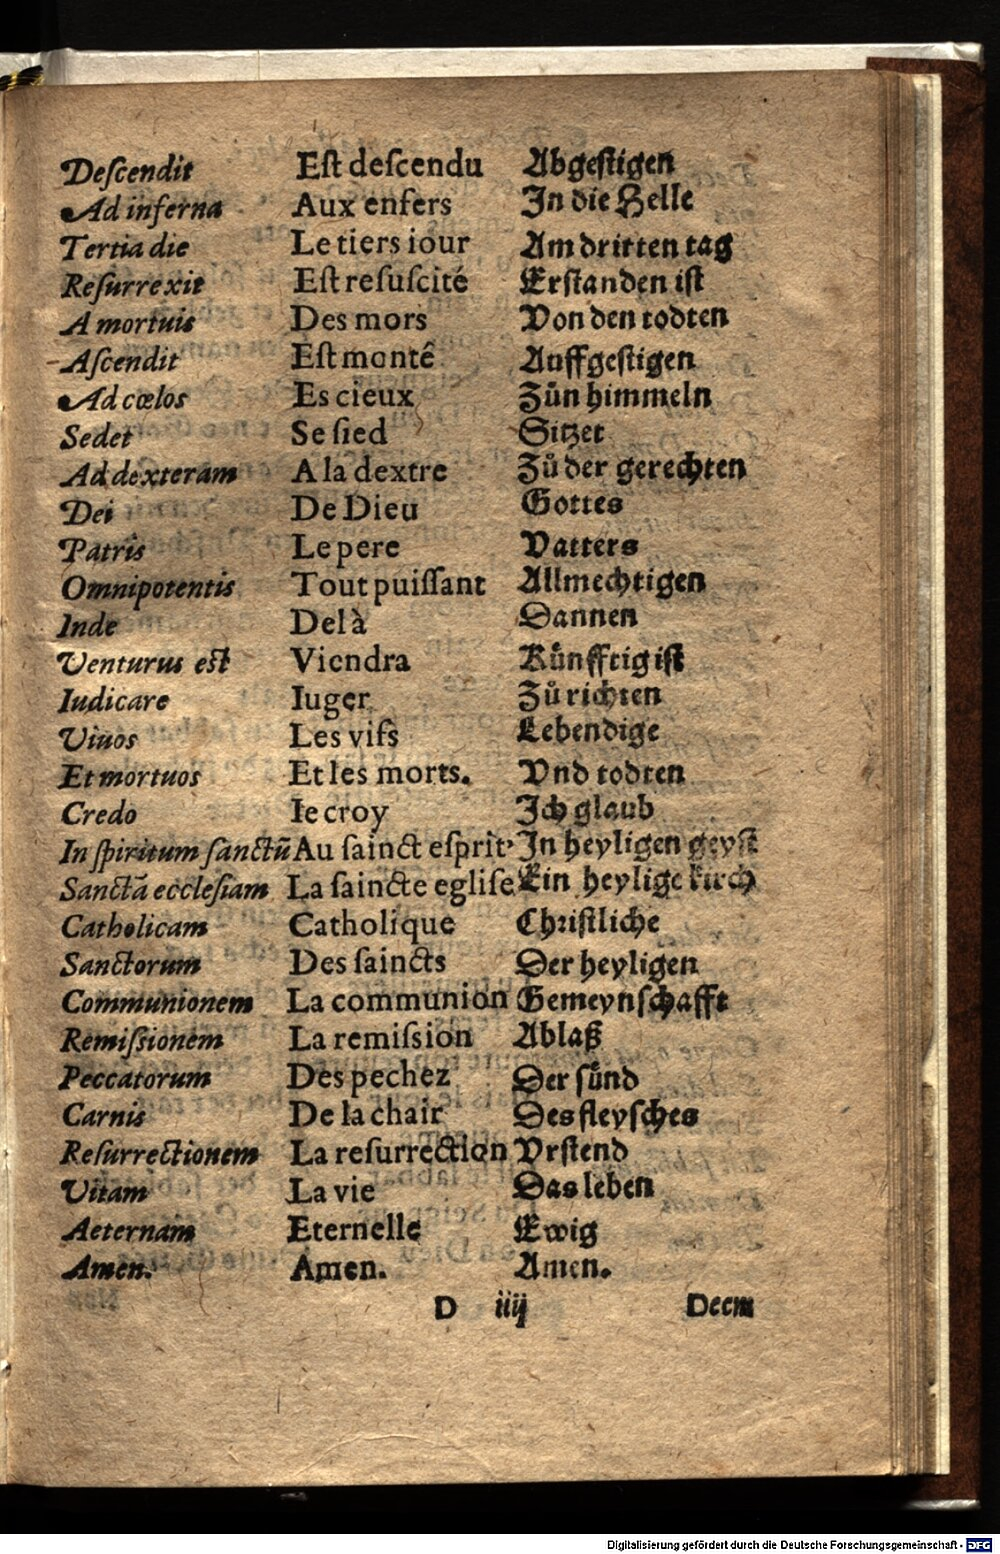 Deſcendit Eſt deſcendu Abgeſtigen
Ad inferna Aux enfers In die Helle
Tertia die Le tiers iour Am dritten tag
Reſurrexit Eſt reſuſcité Erſtanden iſt
A mortuis Des mors Von den todten
Aſcendit Eſt monté Auffgeſtigen
Ad cœlos Es cieux Zůn himmeln
Sedet Se ſied Sitzet
Ad dexteram A la dextre Zů der gerechten
Dei De Dieu Gottes
Patris Le pere Vatters
Omnipotentis Tout puiſſant Allmechtigen
Inde De là Dannen
Venturus eſt Viendra Künfftig iſt
Iudicare Iuger Zů richten
Viuos Les vifs Lebendige
Et mortuos Et les morts. Vnd todten
Credo Ie croy Ich glaub
In ſpiritum ſanctū Au ſainct eſprit In heyligen geyſt
Sanctā eccleſiam La ſaincte egliſe Ein heylige kirch
Catholicam Catholique Chriſtliche
Sanctorum Des ſaincts Der heyligen
Communionem La communion Gemeynſchafft
Remiſsionem La remiſsion Ablaß
Peccatorum Des pechez Der ſünd
Carnis De la chair Des fleyſches
Reſurrectionem La reſurrection Vrſtend
Vitam La vie Das leben
Aeternam Eternelle Ewig
Amen. Amen. Amen.
D iiij Decem
Digitalisierung gefördert durch die Deutsche Forschungsgemeinschaft - DFG